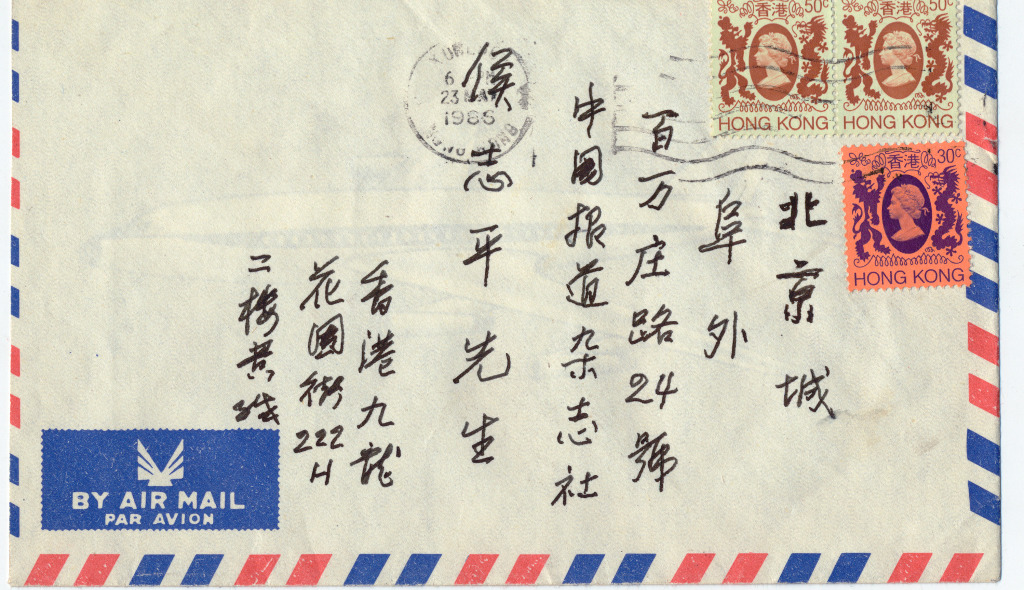 北京城
阜外
百万庄路24號
中國报道杂志社
侯志平先生
香港九龙
花園街222
H
二楼黄
香港 50c
HONG KONG
香港 50c
HONG KONG
香港 30c
HONG KONG
6 PM
23 MAY
1986
HONG KONG
BY AIR MAIL
PAR AVION